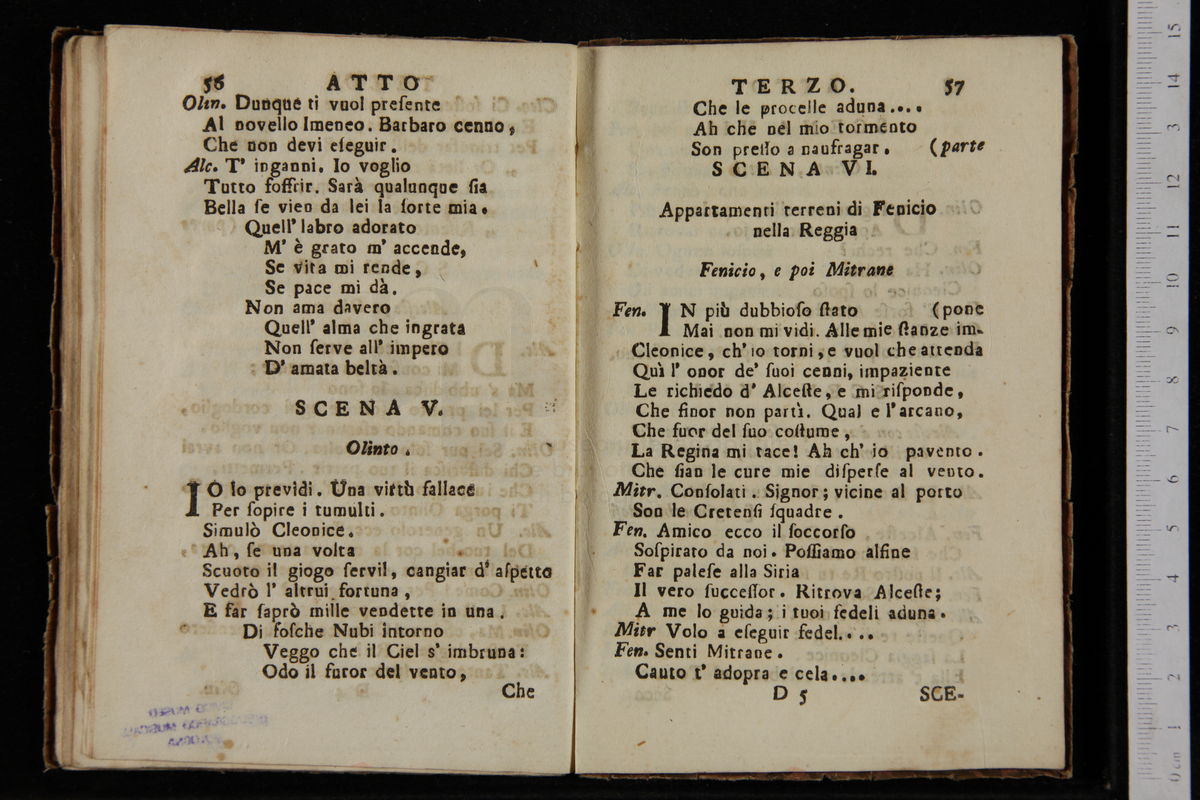 56 ATTO
Olin. Dunque ti vuol preſente
Al novello Imeneo. Barbaro cenno,
Che non devi eſeguir.
Alc. T' inganni. Io voglio
Tutto ſoffrir. Sarà qualunque ſia
Bella ſe vien da lei la ſorte mia.
Quell' labro adorato
M' è grato m' accende,
Se vita mi rende,
Se pace mi dà.
Non ama davero
Quell' alma che ingrata
Non ſerve all' impero
D' amata beltà.
SCENA V.
Olinto.
IO lo previdi. Una virtù fallace
Per ſopire i tumulti.
Simulò Cleonice.
Ah, ſe una volta
Scuoto il giogo ſervil, cangiar d' aſpetto
Vedrò l' altrui fortuna,
E far ſaprò mille vendette in una.
Di foſche Nubi intorno
Veggo che il Ciel s' imbruna:
Odo il furor del vento,
Che
TERZO. 57
Che le procelle aduna....
Ah che nel mio tormento
Son preſſo a naufragar. (parte
SCENA VI.
Appartamenti terreni di Fenicio
nella Reggia
Fenicio, e poi Mitrane
Fen. IN più dubbioſo ſtato (pone
Mai non mi vidi. Alle mie ſtanze im-
Cleonice, ch' io torni, e vuol che attenda
Quì l' onor de' ſuoi cenni, impaziente
Le richiedo d' Alceſte, e mi riſponde,
Che finor non partì. Qual e l'arcano,
Che fuor del ſuo coſtume,
La Regina mi tace! Ah ch' io pavento.
Che ſian le cure mie diſperſe al vento.
Mitr. Conſolati. Signor; vicine al porto
Son le Cretenſi ſquadre.
Fen. Amico ecco il ſoccorſo
Soſpirato da noi. Poſſiamo alfine
Far paleſe alla Siria
Il vero ſucceſſor. Ritrova Alceſte;
A me lo guida; i tuoi fedeli aduna.
Mitr Volo a eſeguir fedel....
Fen. Senti Mitrane.
Cauto t' adopra e cela....
D 5 SCE-